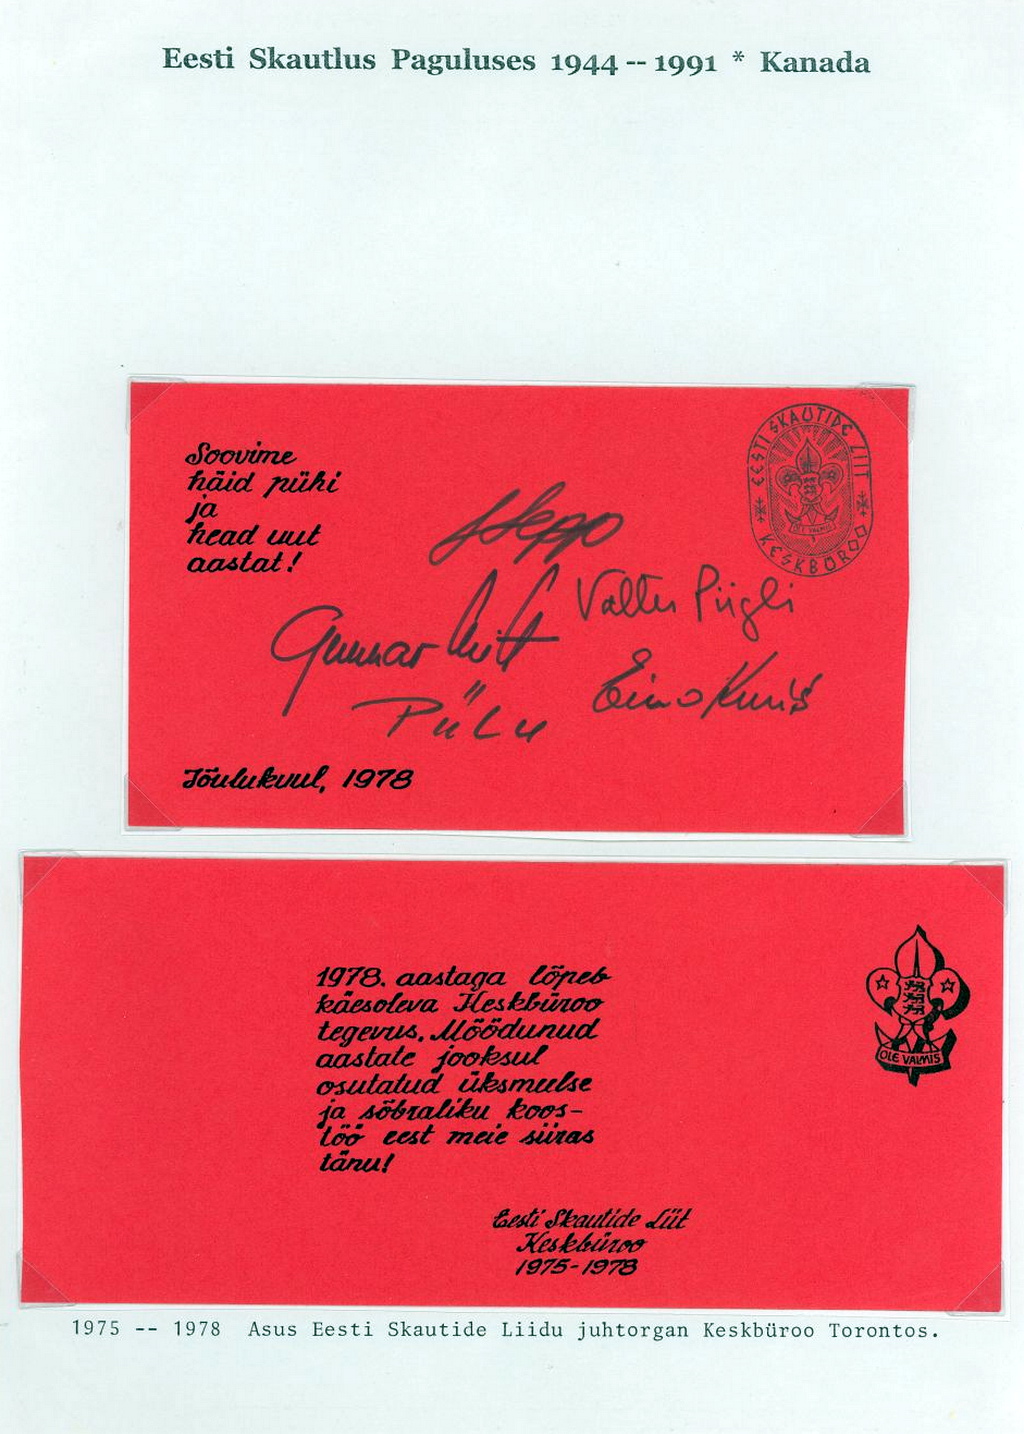 Eesti Skautlus Paguluses 1944 -- 1991 * Kanada
EESTI SKAUTIDE LIIT
OLE VALMIS
KESKBÜROO
Soovime
häid pühi
ja
head uut
aastat!
Valter Piigli
Gunnar Mitt
Jõulukuul, 1978
1978. aastaga lõpeb
käesoleva Keskbüroo
tegevus. Möödunud
aastate jooksul
osutatud üksmeelse
ja sõbraliku koos-
töö eest meie siiras
tänu!
OLE VALMIS
Eesti Skautide Liit
Keskbüroo
1975-1978
1975 -- 1978 Asus Eesti Skautide Liidu juhtorgan Keskbüroo Torontos.